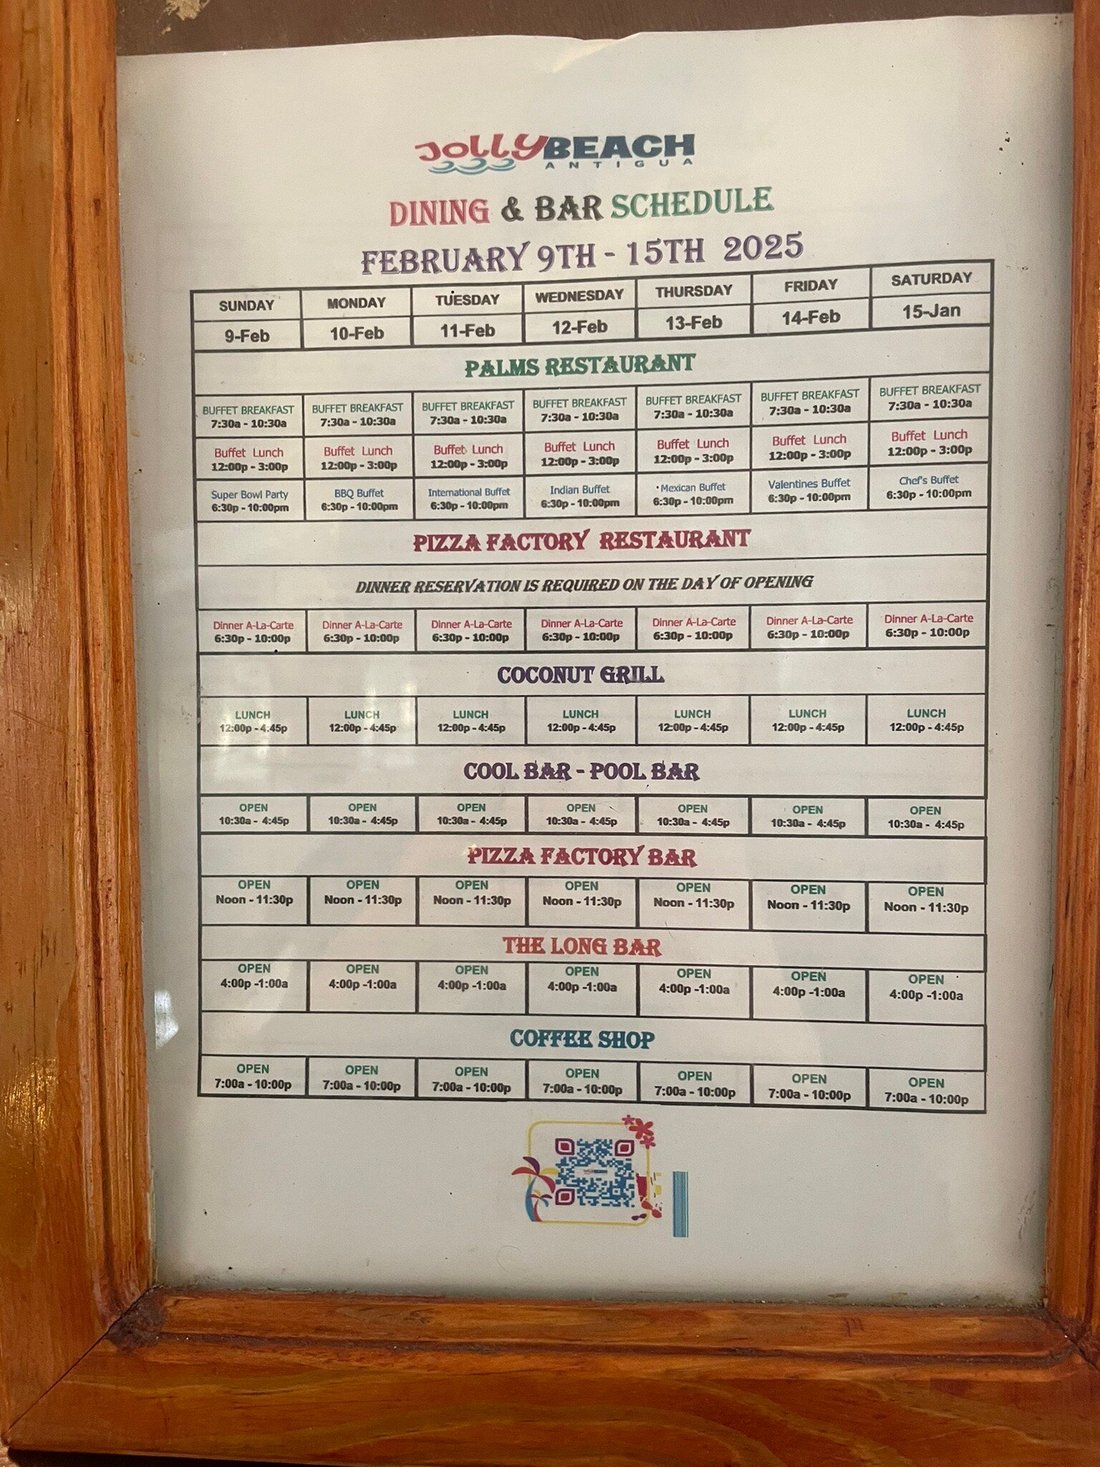 JOLLYBEACH
ANTIGUA
DINING & BAR SCHEDULE
FEBRUARY 9TH - 15TH 2025
SUNDAY MONDAY TUESDAY WEDNESDAY THURSDAY FRIDAY SATURDAY
9-Feb 10-Feb 11-Feb 12-Feb 13-Feb 14-Feb 15-Jan
PALMS RESTAURANT
BUFFET BREAKFAST BUFFET BREAKFAST BUFFET BREAKFAST BUFFET BREAKFAST BUFFET BREAKFAST BUFFET BREAKFAST BUFFET BREAKFAST
7:30a - 10:30a 7:30a - 10:30a 7:30a - 10:30a 7:30a - 10:30a 7:30a - 10:30a 7:30a - 10:30a 7:30a - 10:30a
Buffet Lunch Buffet Lunch Buffet Lunch Buffet Lunch Buffet Lunch Buffet Lunch Buffet Lunch
12:00p - 3:00p 12:00p - 3:00p 12:00p - 3:00p 12:00p - 3:00p 12:00p - 3:00p 12:00p - 3:00p 12:00p - 3:00p
Super Bowl Party BBQ Buffet International Buffet Indian Buffet Mexican Buffet Valentines Buffet Chef's Buffet
6:30p - 10:00pm 6:30p - 10:00pm 6:30p - 10:00pm 6:30p - 10:00pm 6:30p - 10:00pm 6:30p - 10:00pm 6:30p - 10:00pm
PIZZA FACTORY RESTAURANT
DINNER RESERVATION IS REQUIRED ON THE DAY OF OPENING
Dinner A-La-Carte Dinner A-La-Carte Dinner A-La-Carte Dinner A-La-Carte Dinner A-La-Carte Dinner A-La-Carte Dinner A-La-Carte
6:30p - 10:00p 6:30p - 10:00p 6:30p - 10:00p 6:30p - 10:00p 6:30p - 10:00p 6:30p - 10:00p 6:30p - 10:00p
COCONUT GRILL
LUNCH LUNCH LUNCH LUNCH LUNCH LUNCH LUNCH
12:00p - 4:45p 12:00p - 4:45p 12:00p - 4:45p 12:00p - 4:45p 12:00p - 4:45p 12:00p - 4:45p 12:00p - 4:45p
COOL BAR - POOL BAR
OPEN OPEN OPEN OPEN OPEN OPEN OPEN
10:30a - 4:45p 10:30a - 4:45p 10:30a - 4:45p 10:30a - 4:45p 10:30a - 4:45p 10:30a - 4:45p 10:30a - 4:45p
PIZZA FACTORY BAR
OPEN OPEN OPEN OPEN OPEN OPEN OPEN
Noon - 11:30p Noon - 11:30p Noon - 11:30p Noon - 11:30p Noon - 11:30p Noon - 11:30p Noon - 11:30p
THE LONG BAR
OPEN OPEN OPEN OPEN OPEN OPEN OPEN
4:00p -1:00a 4:00p -1:00a 4:00p -1:00a 4:00p -1:00a 4:00p -1:00a 4:00p -1:00a 4:00p -1:00a
COFFEE SHOP
OPEN OPEN OPEN OPEN OPEN OPEN OPEN
7:00a - 10:00p 7:00a - 10:00p 7:00a - 10:00p 7:00a - 10:00p 7:00a - 10:00p 7:00a - 10:00p 7:00a - 10:00p